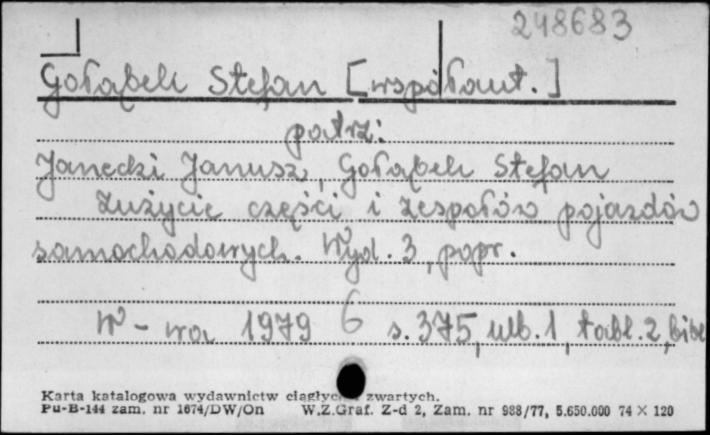 248683
Gołąbek Stefan [współaut.]
patrz:
Janecki Janusz, Gołąbek Stefan
Zużycie części i zespołów pojazdów
samochodowych. Wyd. 3, popr.
W-wa 1979 6 s. 375, ulb. 1, tabl. 2, bibl
Karta katalogowa wydawnictw ciągłych zwartych.
Pu-B-144 zam. nr 1674/DW/On W.Z.Graf. Z-d 2, Zam. nr 988/77, 5.650.000 74 × 120